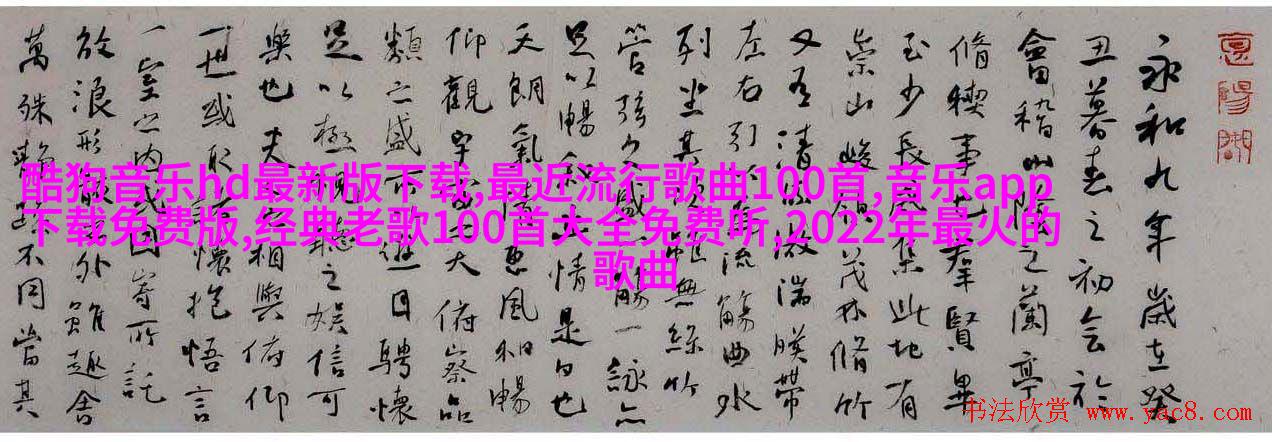 永和九年歲在癸
丑暮春之初會於
會稽山陰之蘭亭
脩稧事也羣賢畢
至少長咸集此地有
崇山峻領茂林脩竹
又有清流激湍暎帶
左右引以為流觴曲水
列坐其次雖無絲竹
管弦之盛一觴一詠亦
足以暢叙幽情是日也
天朗氣清惠風和暢
仰觀宇宙之大俯察品
類之盛所以遊目騁懷
足以極視聽之娛信可
樂也夫人之相與俯仰
一世或取諸懷抱悟言
一室之內或因寄所託
放浪形骸之外雖趣舍
萬殊靜躁不同當其
酷狗音乐hd最新版下载,最近流行歌曲100首,音乐app
下载免费版,经典老歌100首大全免费听,2022年最火的
歌曲
书法欣赏 www.yac8.com